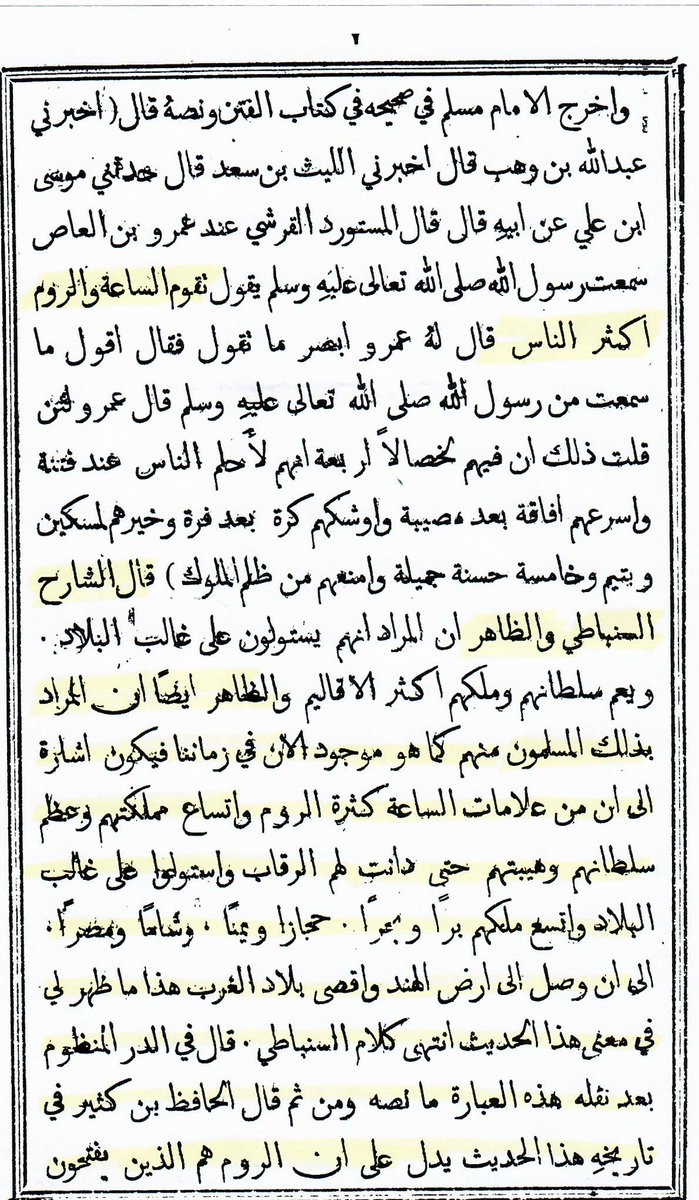 ٢
واخرج الامام مسلم في صحيحه في كتاب الفتن ونصهُ قال (اخبرني
عبدالله بن وهب قال اخبرني الليث بن سعد قال حدثني موسى
ابن علي عن ابيهِ قال قال المستورد القرشي عند عمرو بن العاص
سمعت رسول الله صلى الله تعالى عليهِ وسلم يقول تقوم الساعة والروم
اكثر الناس قال لهُ عمرو ابصر ما تقول فقال اقول ما
سمعت من رسول الله صلى الله تعالى عليهِ وسلم قال عمرو لئن
قلت ذلك ان فيهم لخصالاً اربعة انهم لأحلم الناس عند فتنة
واسرعهم افاقة بعد مصيبة واوشكهم كرة بعد فرة وخيرهم لمسكين
ويتيم وخامسة حسنة جميلة وامنعهم من ظلم الملوك) قال الشارح
السنباطي والظاهر ان المراد انهم يستولون على غالب البلاد .
ويعم سلطانهم وملكهم اكثر الاقاليم والظاهر ايضًا ان المراد
بذلك المسلمون منهم كما هو موجود الآن في زماننا فيكون اشارة
الى ان من علامات الساعة كثرة الروم واتساع مملكتهم وعظم
سلطانهم وهيبتهم حتى دانت لهم الرقاب واستولوا على غالب
البلاد واتسع ملكهم برًا وبحرًا . حجازا ويمنًا ، وشامًا ومصرًا ،
الى ان وصل الى ارض الهند واقصى بلاد الغرب هذا ما ظهر لي
في معنى هذا الحديث انتهى كلام السنباطي . قال في الدر المنظوم
بعد نقله هذه العبارة ما نصه ومن ثم قال الحافظ بن كثير في
تاريخهِ هذا الحديث يدل على ان الروم هم الذين يفتحون